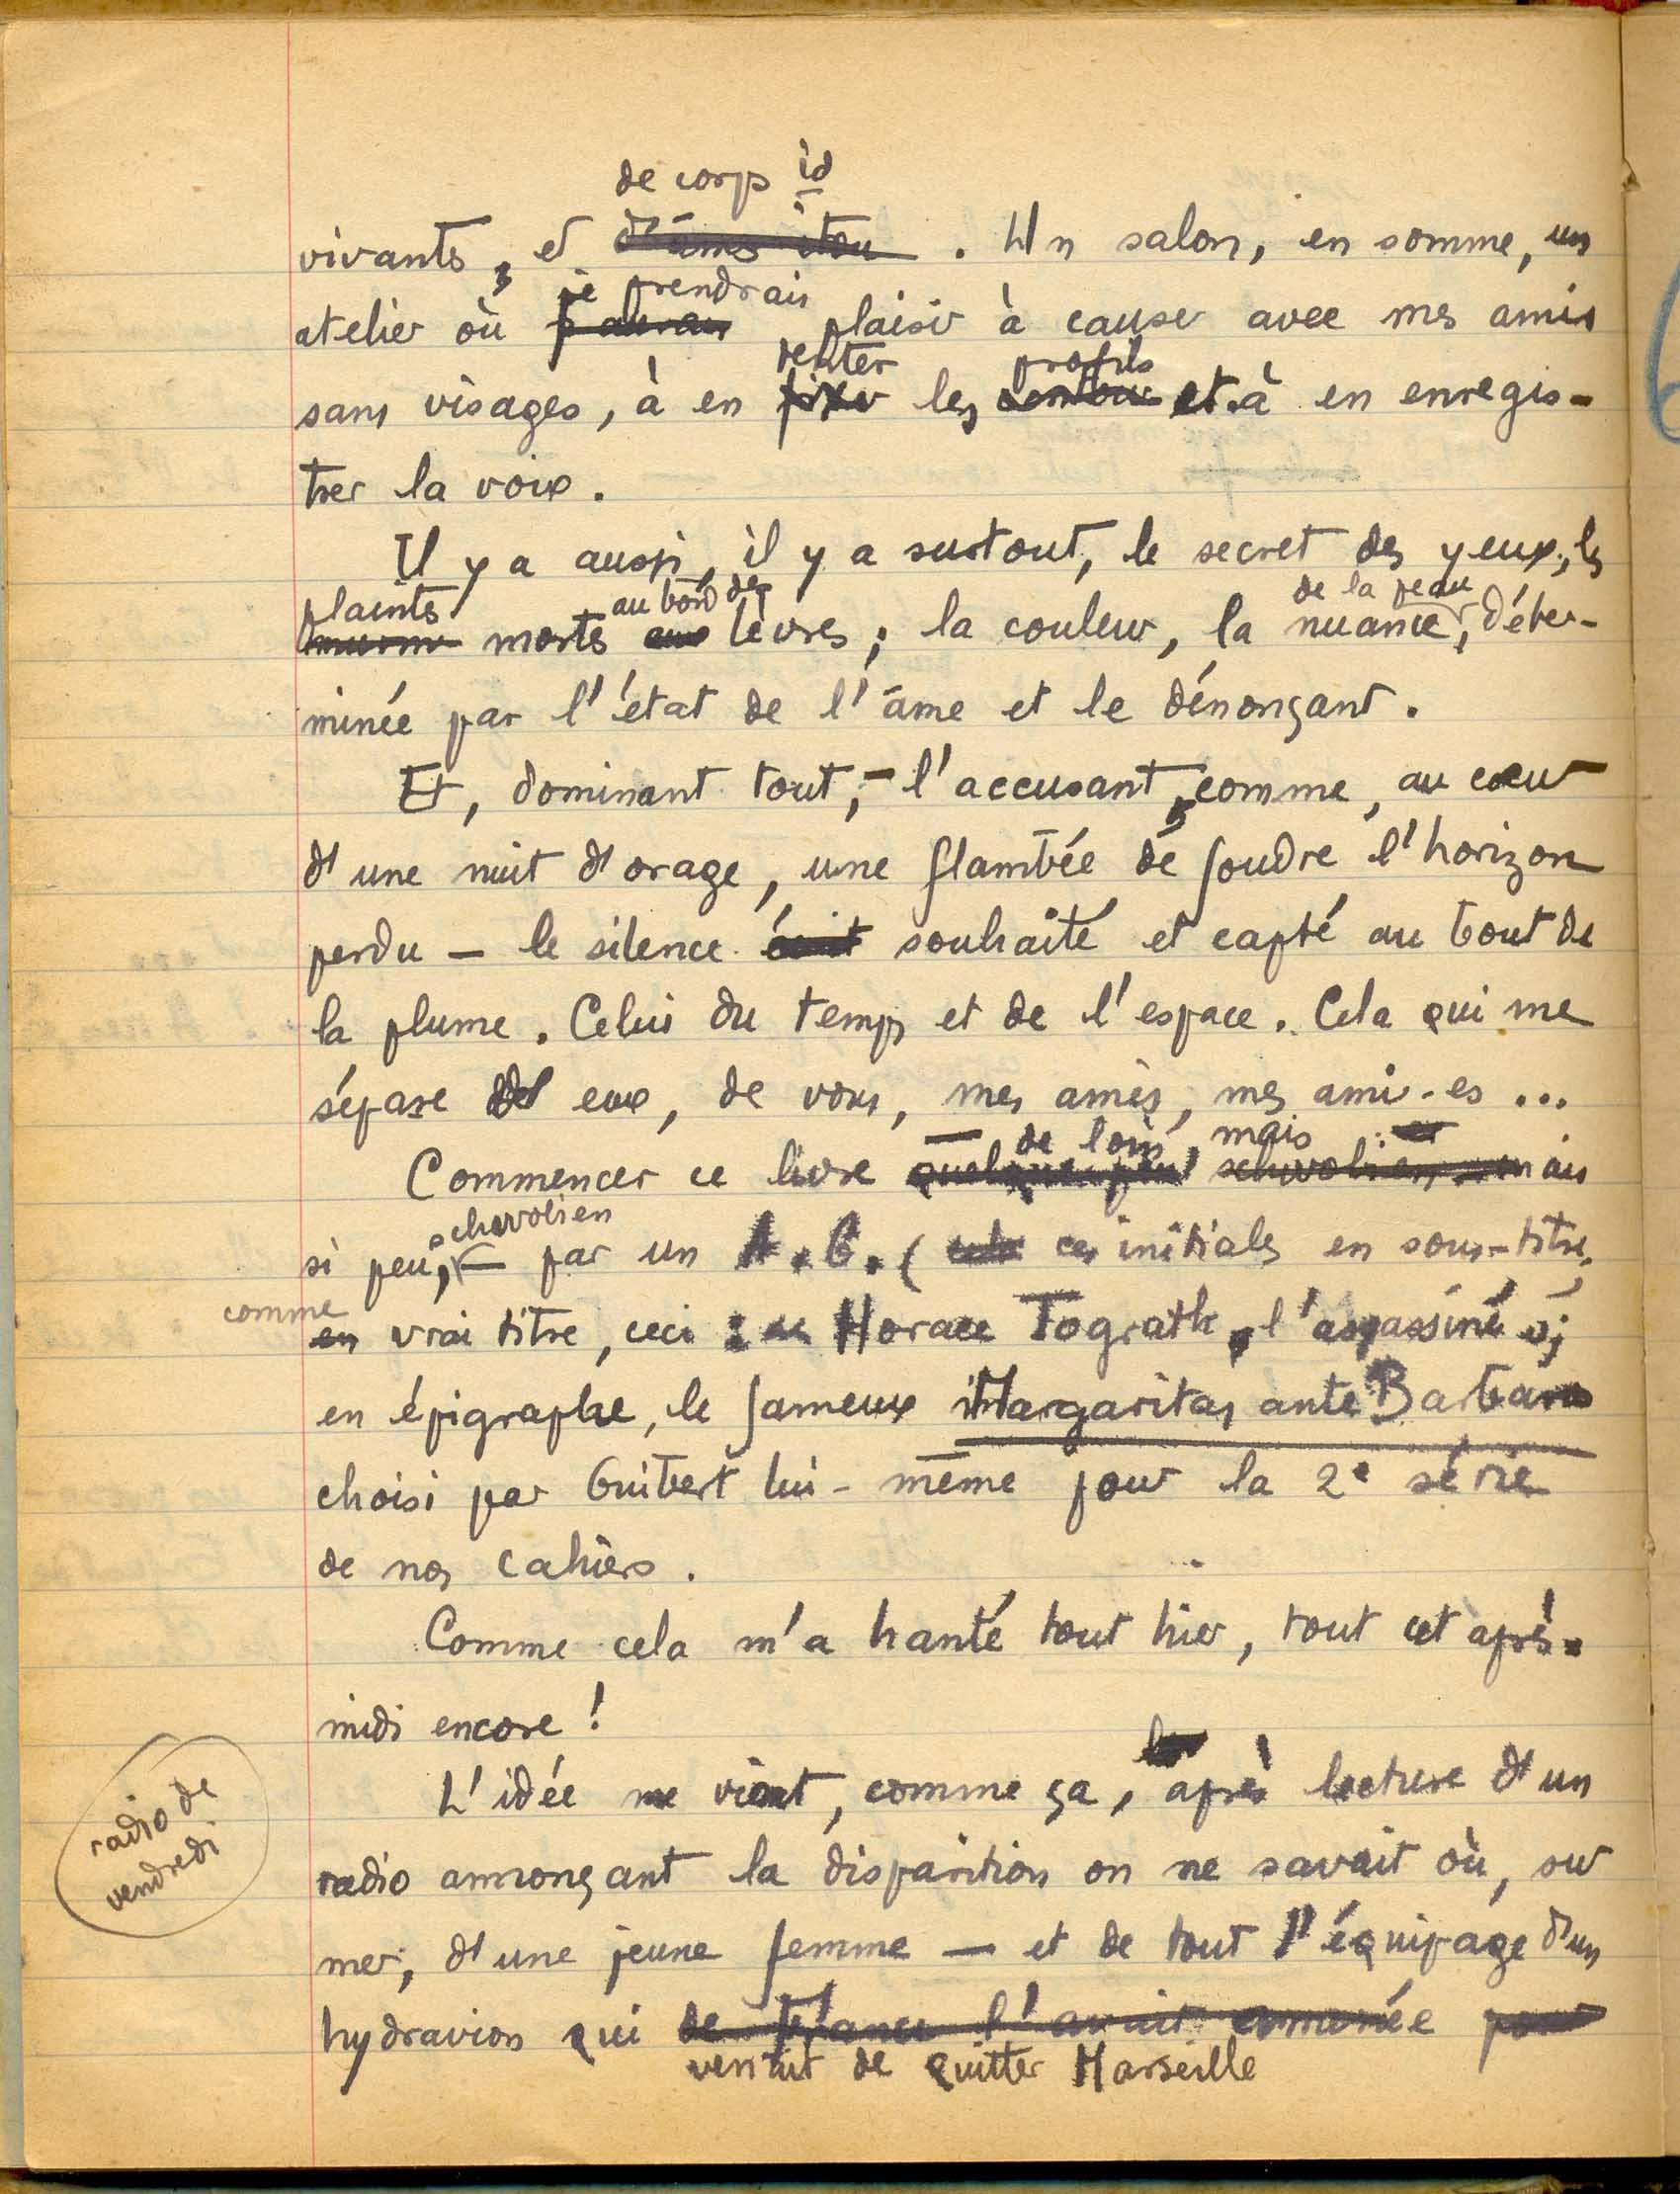 de corps id
vivants, et d'âmes itou. Un salon, en somme, un
je prendrais
atelier où j'aurais plaisir à causer avec mes amis
deliter profils
sans visages, à en fixer les contours et à en enregis-
trer la voix.
Il y a aussi, il y a surtout, le secret des yeux, les
plaints au bord des de la peau
murm morts aux lèvres ; la couleur, la nuance, déter-
minée par l'état de l'âme et le dénonçant.
Et, dominant tout, - l'accusant, comme, au cœur
d'une nuit d'orage, une flambée de foudre l'horizon
perdu — le silence écrit souhaité et capté au bout de
la plume. Celui du temps et de l'espace. Cela qui me
sépare d' eux, de vous, mes amis, mes ami-es ...
— de loin, mais
Commencer ce livre quelque peu schwobien, mais
schwobien
si peu, — par un A. G. ( ces initiales en sous-titre,
comme
en vrai titre, ceci : Horace Tograth, l'assassiné » ;
en épigraphe, le fameux Margaritas ante Barbaros
choisi par Guibert lui-même pour la 2e série
de nos cahiers.
Comme cela m'a hanté tout hier, tout cet après-
midi encore !
L'idée me vient, comme ça, après lecture d'un
radio annonçant la disparition on ne savait où, sur
mer, d'une jeune femme — et de tout l'équipage d'un
hydravion qui de France l'avait amenée pour
venait de quitter Marseille
radio de
vendredi